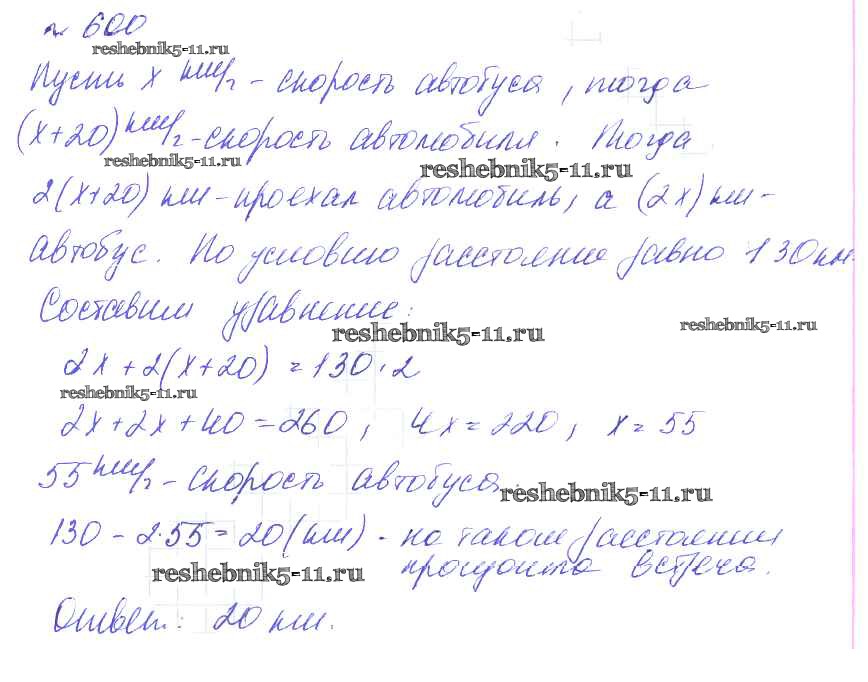 № 600
reshebnik5-11.ru
Пусть x км/г - скорость автобуса, тогда
(x+20) км/г - скорость автомобиля. Тогда
reshebnik5-11.ru
reshebnik5-11.ru
2(x+20) км - проехал автомобиль, а (2x) км -
автобус. По условию расстояние равно 130 км.
Составим уравнение:
reshebnik5-11.ru
reshebnik5-11.ru
2x + 2(x+20) = 130·2
reshebnik5-11.ru
2x + 2x + 40 = 260, 4x = 220, x = 55
55 км/г - скорость автобуса
reshebnik5-11.ru
130 - 2·55 = 20 (км) - на таком расстоянии
reshebnik5-11.ru
произошла встреча.
Ответ: 20 км.